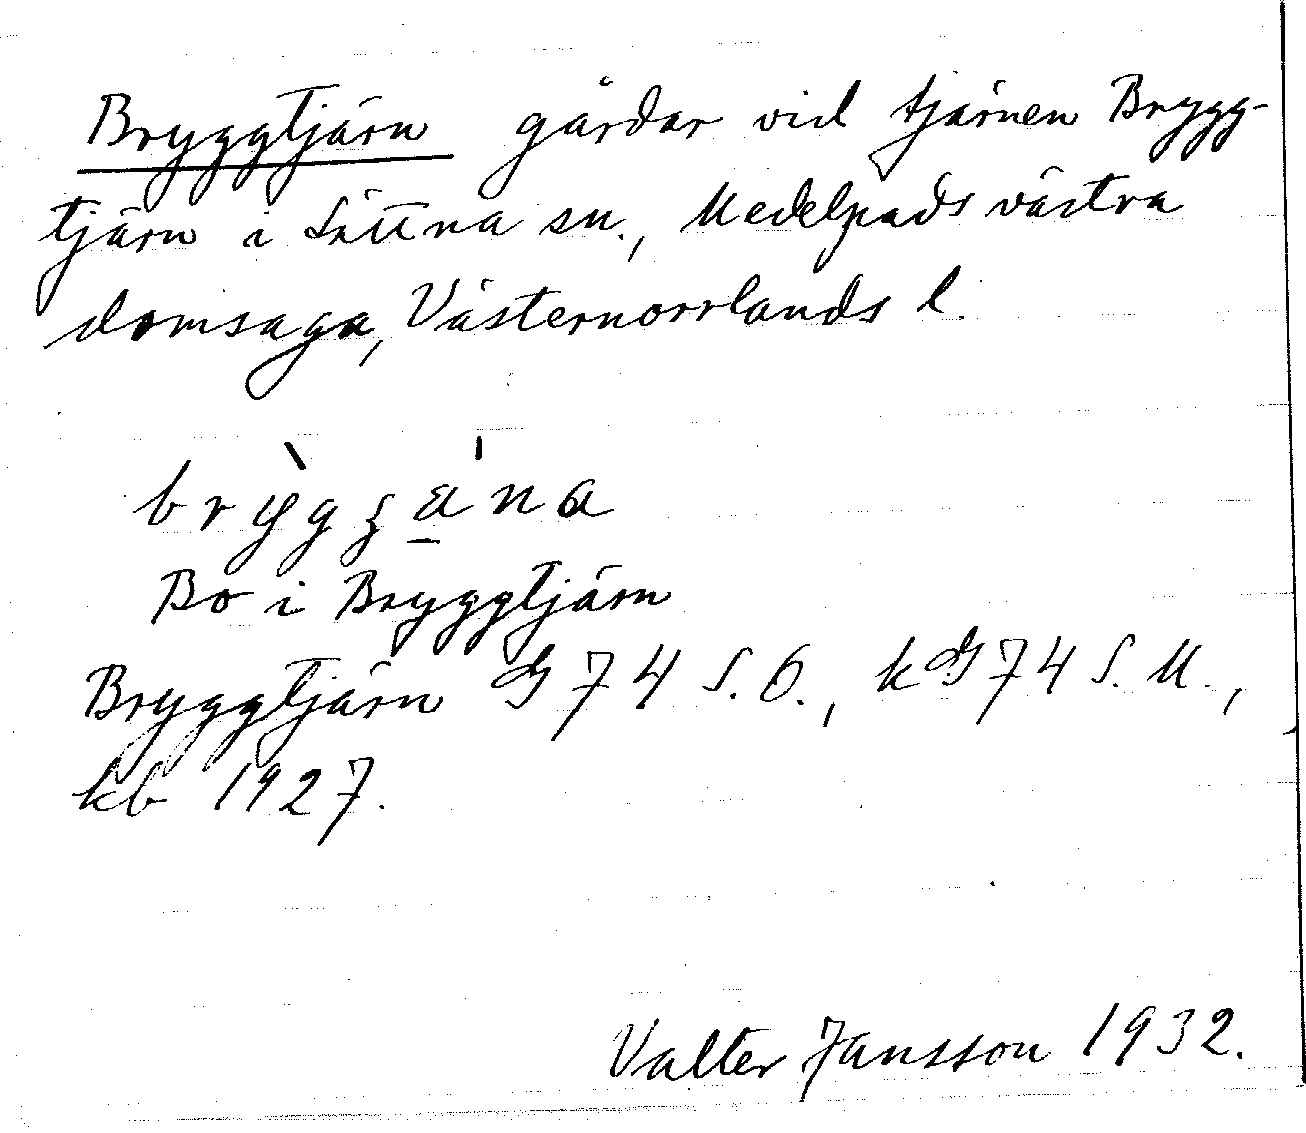 Bryggtjärn gårdar vid tjärnen Brygg-
tjärn i Sättna sn., Medelpads västra
domsaga, Västernorrlands l.
Bo i Bryggtjärn
Bryggtjärn G 74 S.O., k G 74 S.M.,
kb 1927.
Valter Jansson 1932.